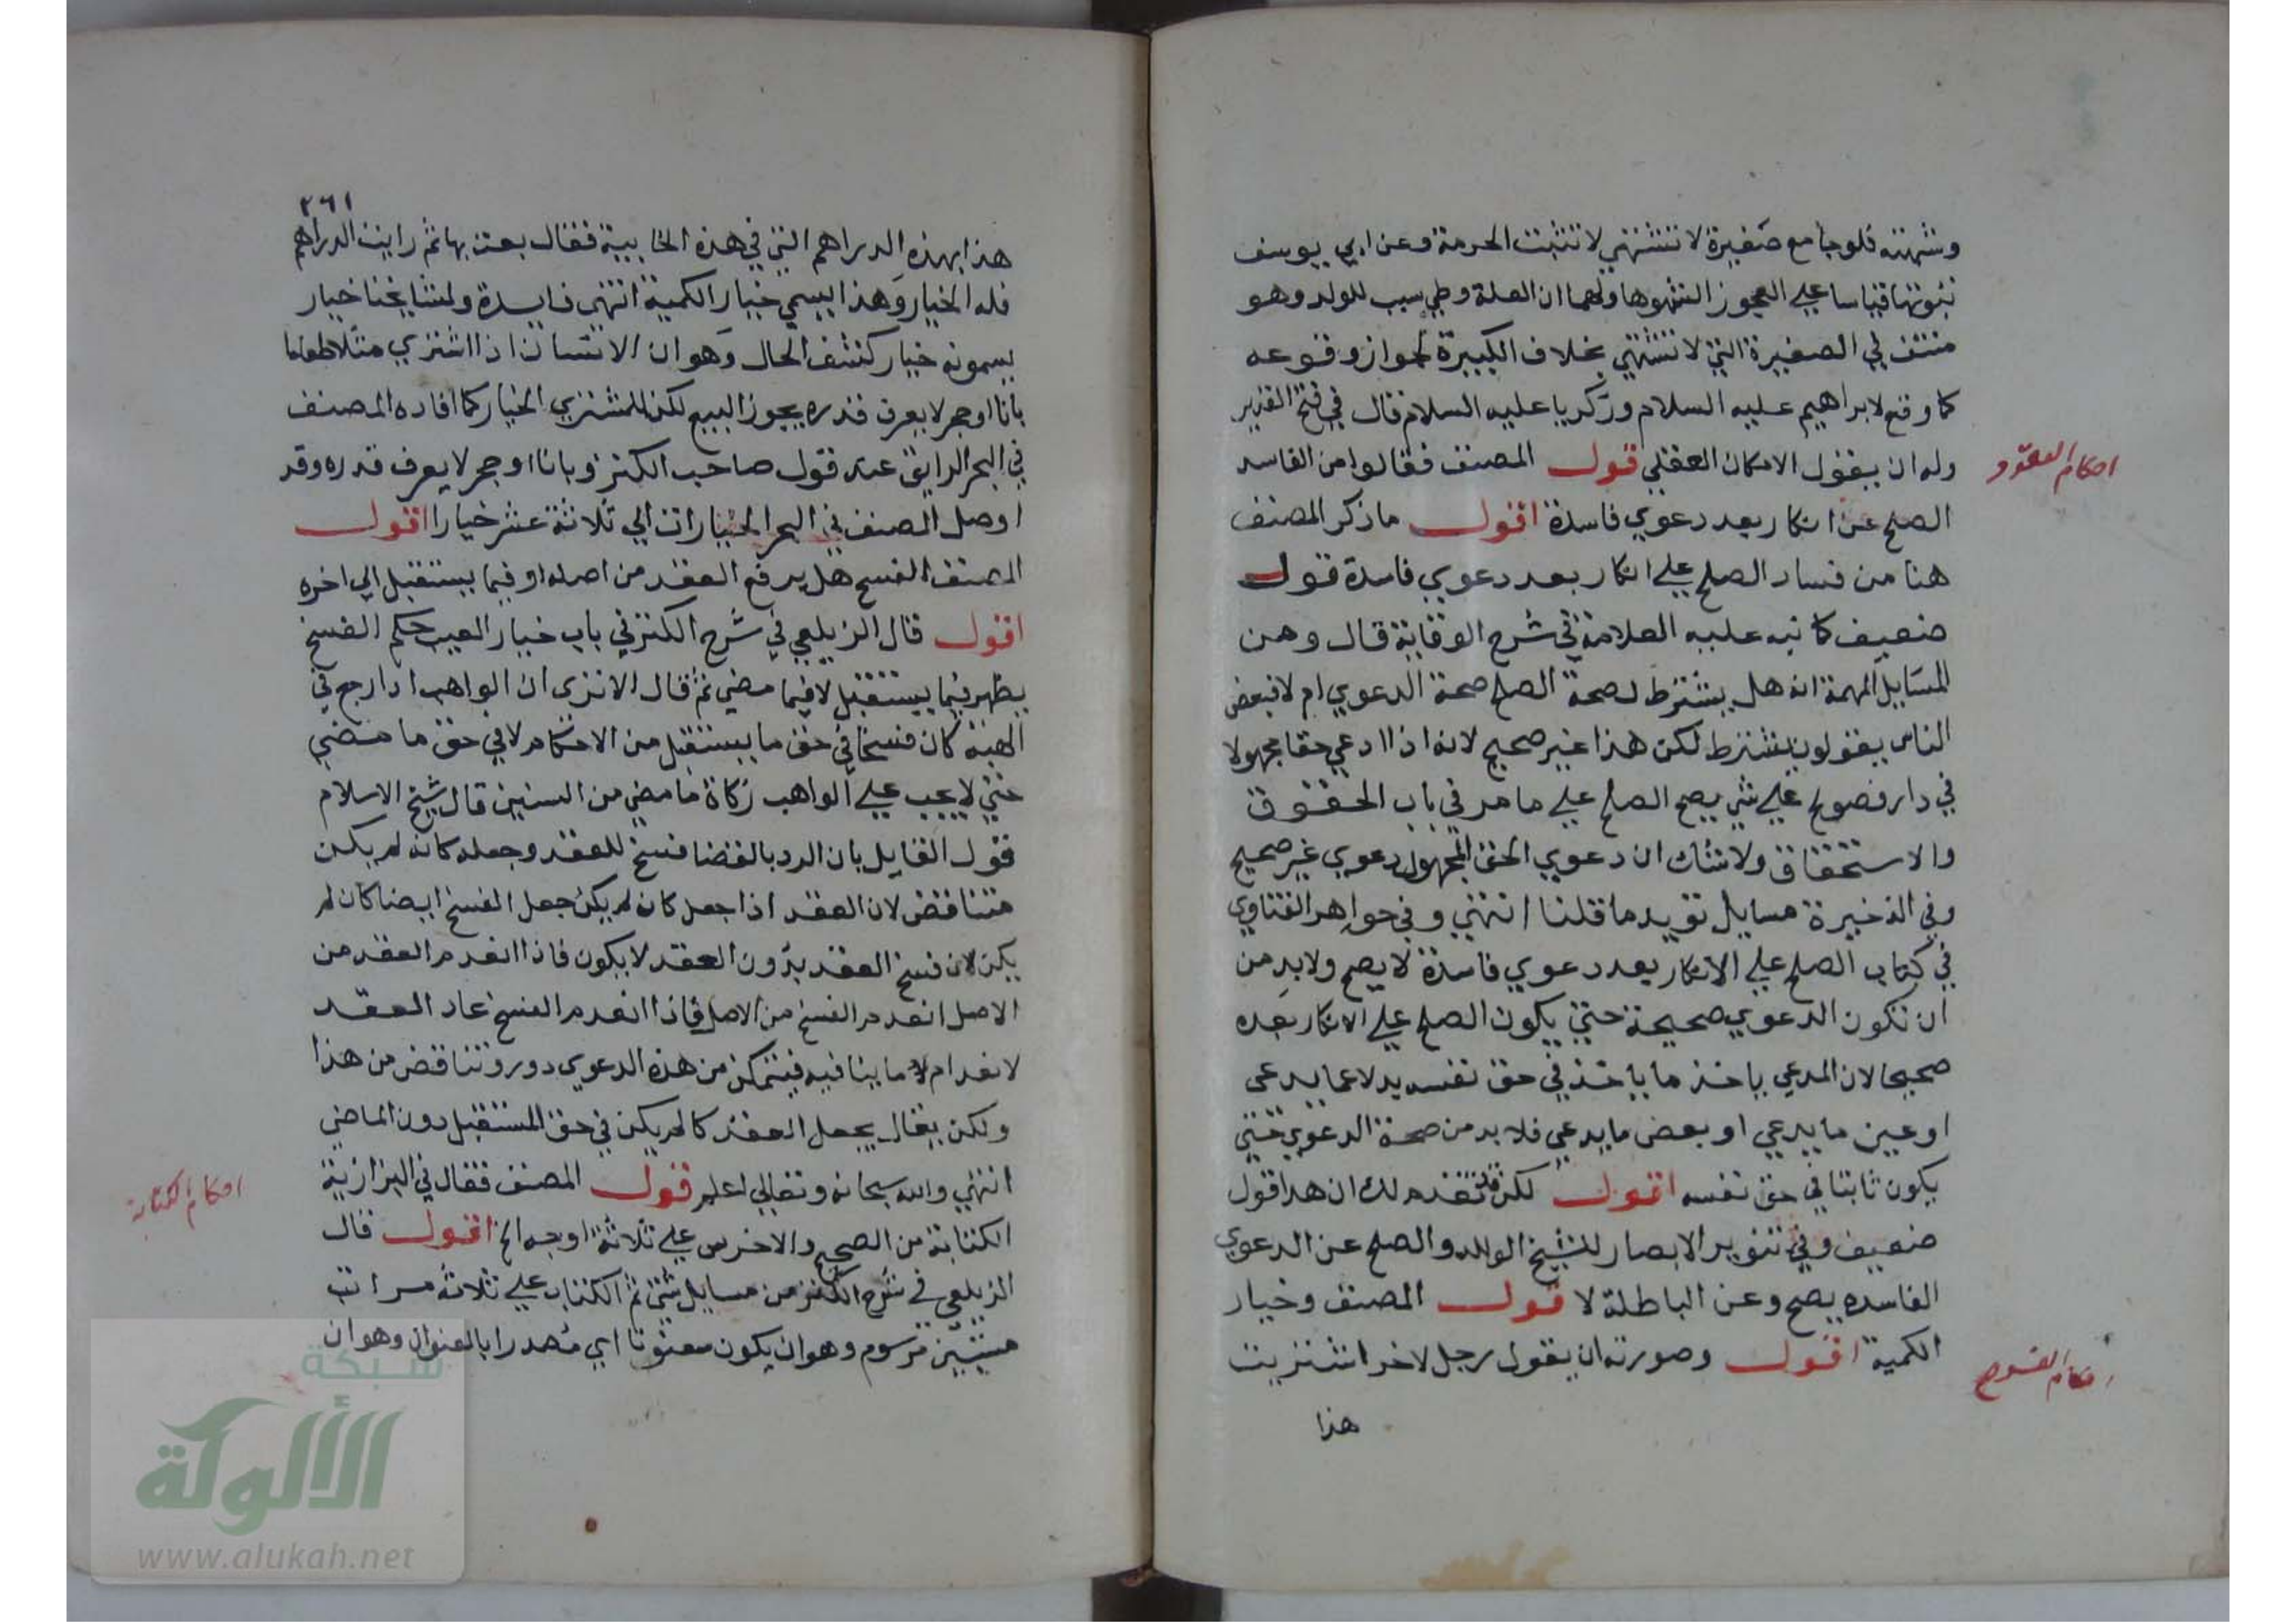 وشهوته فلو جامع صغيرة لا تشتهى لا تثبت الحرمة وعن ابي يوسف
ثبوتها قياسا علي العجوز الشهوها ولهما ان العلة وطي سبب للولد وهو
منتف في الصغيرة التي لا تشتهي بخلاف الكبيرة لجواز وقوعه
كما وقع لابراهيم عليه السلام وزكريا عليه السلام قال في فتح القدير
وله ان يقول الامكان العقلي قول المصنف فقالوا من الفاسد
احكام العقود
الصلح عن انكار بعد دعوي فاسدة اقول ما ذكر المصنف
هنا من فساد الصلح علي انكار بعد دعوي فاسدة قول
ضعيف كما نبه عليه العلامة في شرح الوقاية قال ومن
المسايل المهمة انه هل يشترط لصحة الصلح صحة الدعوي ام لا فبعض
الناس يقولون يشترط لكن هذا غير صحيح لانه اذا ادعي حقا مجهولا
في دار فصولح علي شي يصح الصلح علي ما مر في باب الحقوق
والاستحقاق ولا شك ان دعوي الحق المجهول دعوي غير صحيح
وفي الذخيرة مسايل تويد ما قلنا انتهي وفي جواهر الفتاوي
في كتاب الصلح علي الانكار بعد دعوي فاسدة لا يصح ولا بد من
ان تكون الدعوي صحيحة حتي يكون الصلح علي الانكار بعده
صحيحا لان المدعي ياخذ ما ياخذ في حق نفسه بدلا عما يدعى
او عين ما يدعي او بعض ما يدعي فلا بد من صحة الدعوي حتي
يكون ثابتا في حق نفسه اقول لكن قد تقدم لك ان هذا قول
ضعيف وفي تنوير الابصار للشيخ الوالد والصلح عن الدعوي
الفاسده يصح وعن الباطلة لا قول المصنف وخيار
الكمية اقول وصورته ان يقول رجل لاخر اشتريت
احكام الفسوخ
هذا
٢٦١
هذا بهذه الدراهم التي في هذه الخابية فقال بعت بها ثم رايت الدراهم
فله الخيار وهذا يسمي خيار الكمية انتهي فايدة ولمشايخنا خيار
يسمونه خيار كشف الحال وهو ان الانسان اذا اشتري مثلا طعاما
بانا او حجر لا يعرف قدره يجوز البيع لكن للمشتري الخيار كما افاده المصنف
في البحر الرايق عند قول صاحب الكنز وبانا او حجر لا يعرف قدره وقد
اوصل المصنف في البحر الخيارات الي ثلاثة عشر خيارا اقول
المصنف الفسخ هل يرفع العقد من اصله او فيما يستقبل الي اخره
اقول قال الزيلعي في شرح الكنز في باب خيار العيب حكم الفسخ
يظهر فيما يستقبل لا فيما مضي ثم قال الا تري ان الواهب اذا رجع في
الهبة كان فسخا في حق ما يستقبل من الاحكام لا في حق ما مضي
حتي لا يجب علي الواهب زكاة ما مضي من السنين قال شيخ الاسلام
قول القايل بان الرد بالقضا فسخ للعقد وجعله كانه لم يكن
متناقض لان العقد اذا جعل كان لم يكن جعل الفسخ ايضا كان لم
يكن لان فسخ العقد بدون العقد لا يكون فاذا انعدم العقد من
الاصل انعدم الفسخ من الاصل فاذا انعدم الفسخ عاد العقد
لانعدام ما ينافيه فيتمكن من هذه الدعوي دور وتناقض من هذا
ولكن يقال يجعل العقد كا لم يكن في حق المستقبل دون الماضي
انتهي والله سبحانه وتعالي اعلم قول المصنف فقال في البزازية
احكام الكتابة
الكتابة من الصحيح والاخرس علي ثلاثة اوجه الخ اقول قال
الزيلعي في شرح الكنز من مسايل شتي ثم الكتاب علي ثلاثة مراتب
مستبين مرسوم وهو ان يكون معنونا اي مصدرا بالعنوان وهو ان
شبكة
الألوكة
www.alukah.net